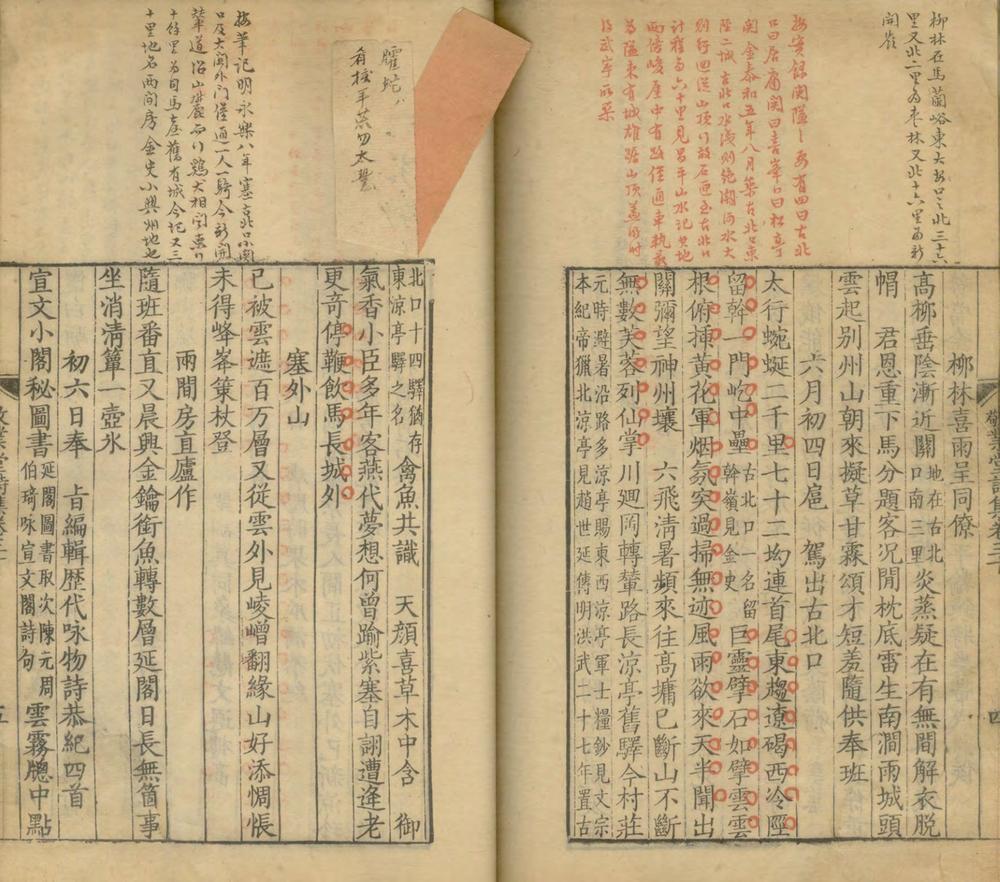 柳林在馬蘭峪東大安口之北三十六
里又北二里為枣林又北十六里為新
開嶺
按實録関隘之要有四曰古北
口曰居庸関曰喜峯口曰松亭
関金泰和五年八月築古北口東
陘二城古北口水淺則絶潮河水大
別行迴從山頂行故石匣至古北口
計程六十里見昌平山水記其地
兩傍峻崖中有路僅通車軌最
為隘東有城雄踞山頂蓋明時
徐武寧所築
柳林喜雨呈同僚
髙柳垂陰漸近關地在古北口南三里炎蒸疑在有無間解衣脱
帽　君恩重下馬分題客况閒枕底雷生南澗雨城頭
雲起别州山朝來擬草甘霖頌才短羞隨供奉班
六月初四日扈　駕出古北口
太行蜿蜒二千里七十二㘭連首尾東趨遼碣西冷陘
留幹一門屹中壘古北口一名留幹嶺見金史巨靈擘石如擘雲雲
根俯揷黃花軍烟氛突過掃無迹風雨欲來天半聞出
關彌望神州壤　六飛淸暑頻來往髙墉已斷山不斷
無數芙蓉列仙掌川迴岡轉輦路長涼亭舊驛今村莊
元時避暑沿路多涼亭賜東西涼亭軍士糧鈔見文宗
本紀帝獵北涼亭見趙世延傳明洪武二十七年置古
按筆記明永樂八年塞古北口小関
口及大関外門僅通一人一騎今新開
輦道沿山麓而行鷄犬相聞東行
十餘里為司馬台舊有城今圮又三
十里地名兩间房金史小興州地也
北口十四驛猶存
東涼亭驛之名禽魚共識　天顏喜草木中含　御
氣香小臣多年客燕代夢想何曾踰紫塞自詡遭逢老
更竒停鞭飲馬長城外
塞外山
已被雲遮百万層又從雲外見崚嶒翻緣山好添惆悵
未得峰峯䇿杖登
兩間房直廬作
隨班番直又晨興金鑰銜魚轉數層延閣日長無箇事
坐消淸簟一壺氷
初六日奉　㫖編輯歴代咏物詩恭紀四首
宣文小閣秘圖書延閣圖書取次陳元周伯琦咏宣文閣詩句雲霧牕中點